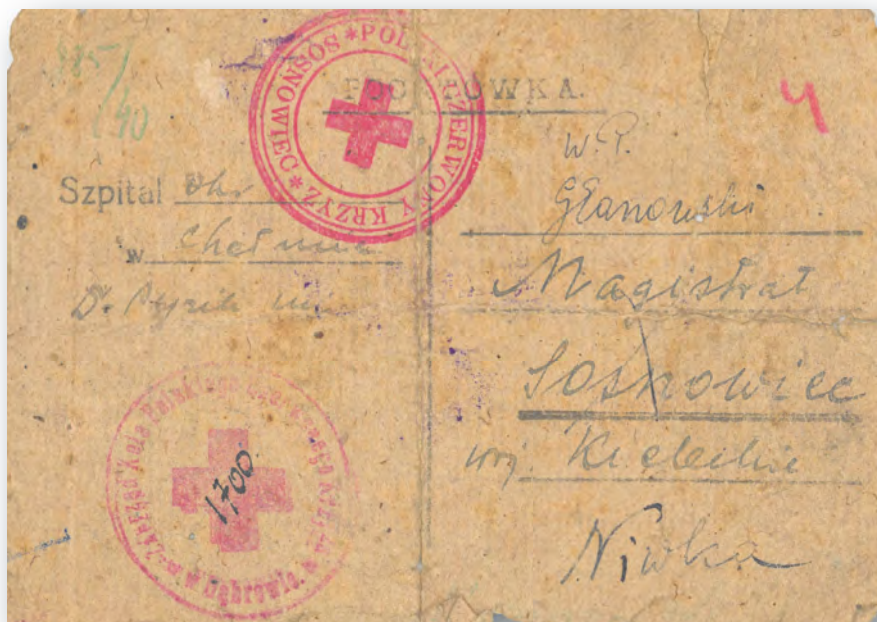 115/40
POCZTÓWKA.
4
SOSNOWIEC * POLSKI CZERWONY KRZYŻ *
Szpital Okr
w Chełmie
Dr.
W. P.
Glanowski
Magistrat
Sosnowiec
woj. Kieleckie
Niwka
Zarząd Koła Polskiego Czerwonego Krzyża
w Dąbrowie.
1700